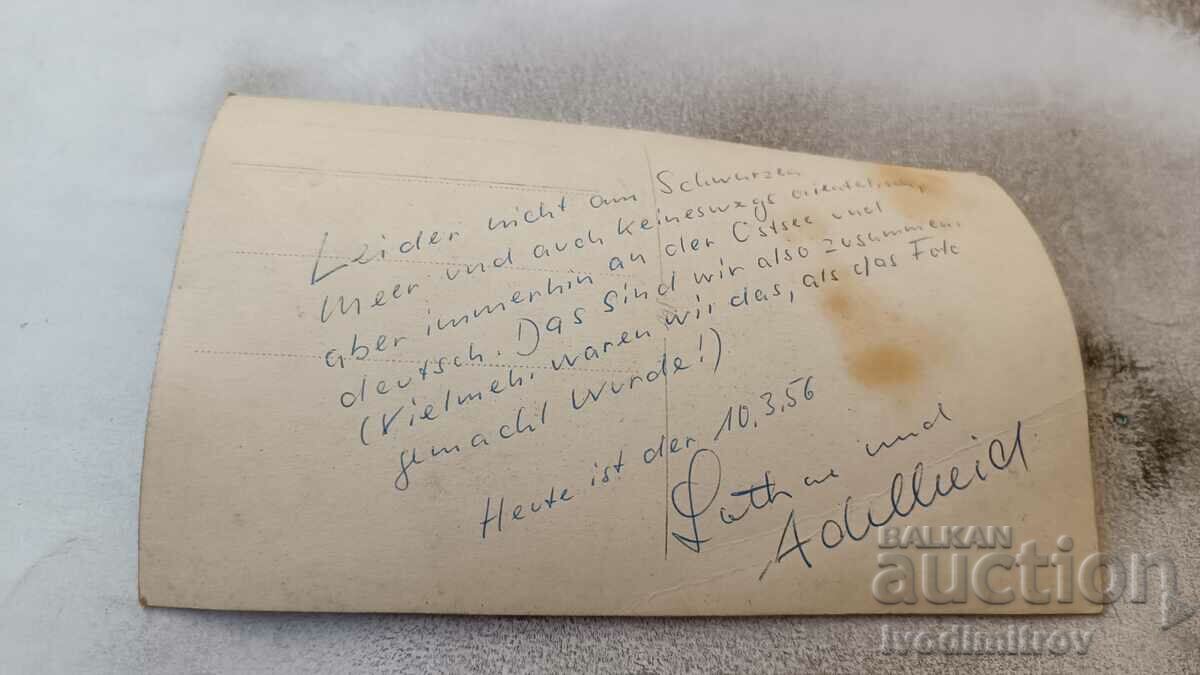 Leider nicht am Schwarzen
Meer und auch keineswegs orientalisch,
aber immerhin an der Ostsee und
deutsch. Das sind wir also zusammen.
(Vielmehr waren wir das, als das Foto
gemacht wurde!)
Heute ist der 10.3.56
Lothar und
Adelheid
BALKAN
auction
ivodimitrov